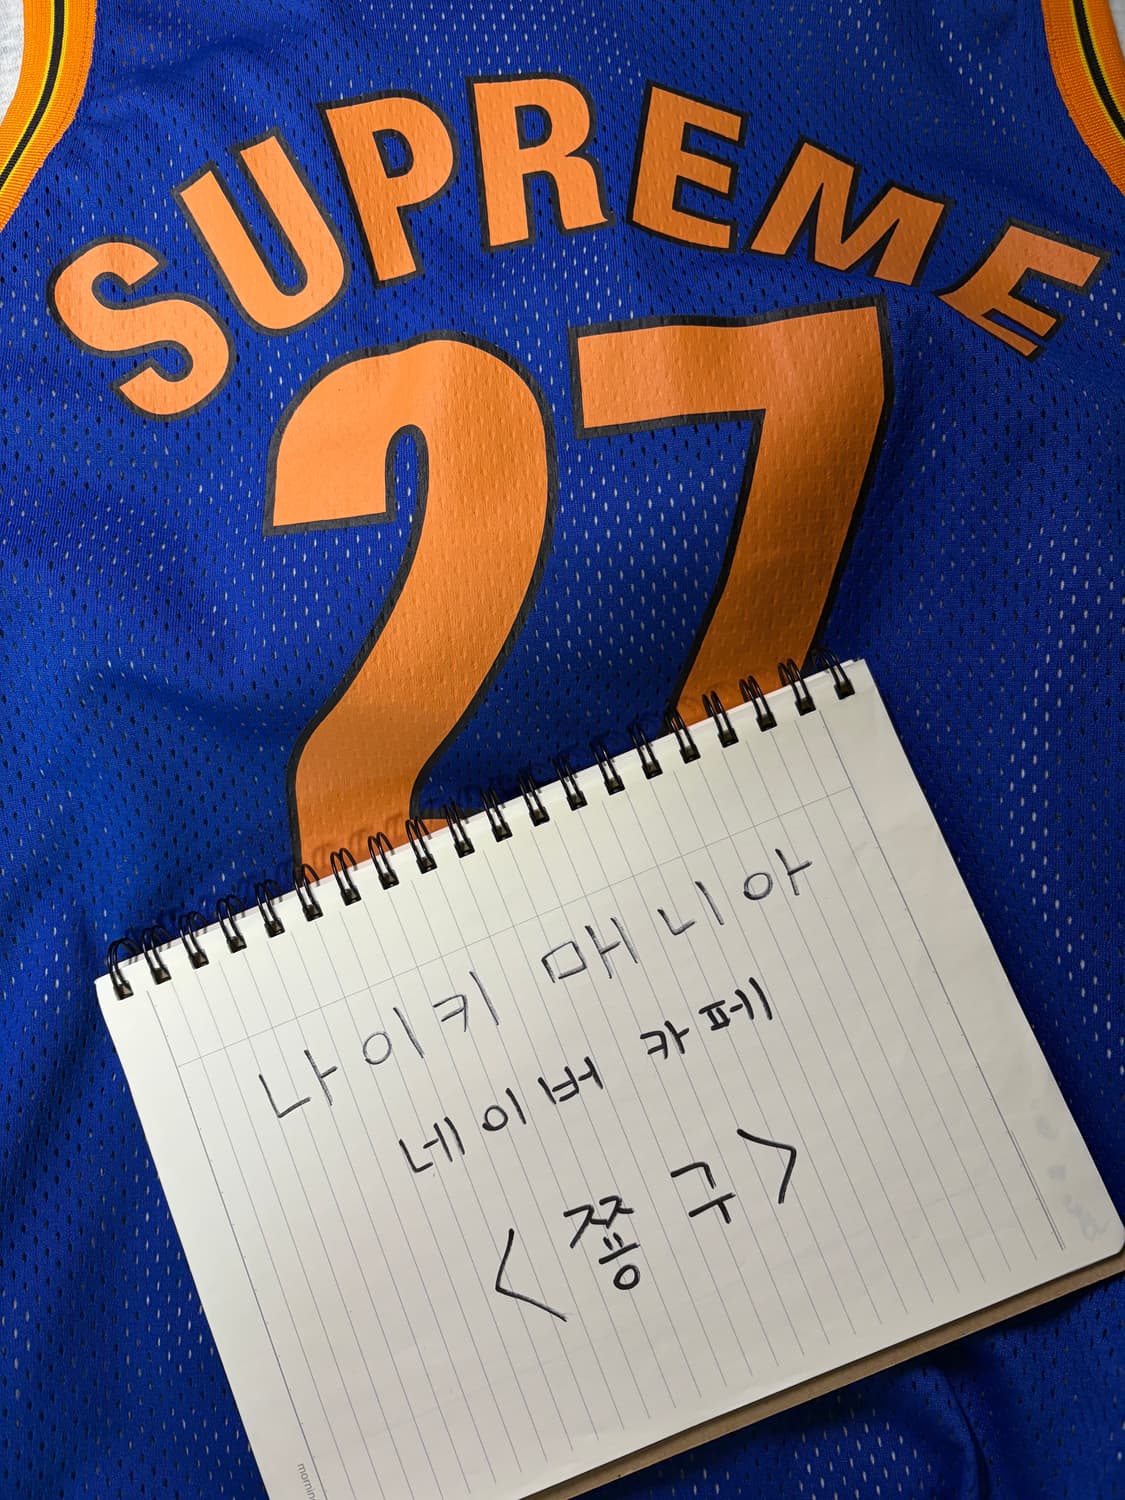 SUPREME
27
나이키 매니아
네이버 카페
<쭁구>